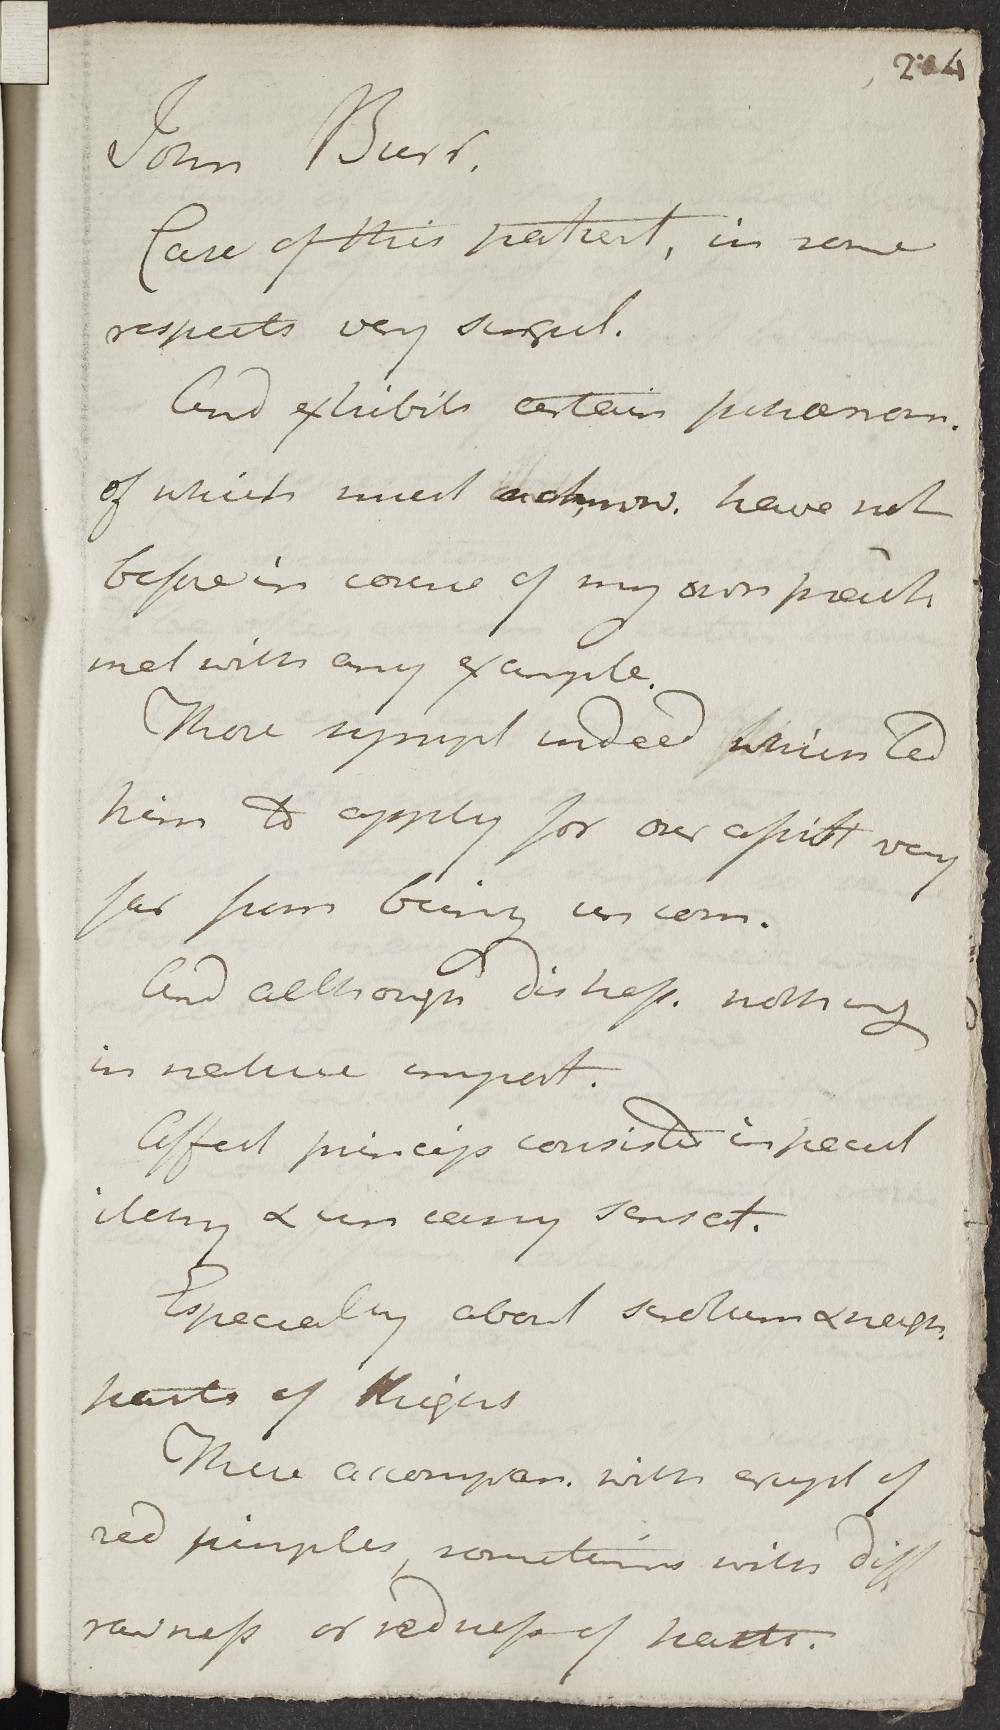 204
John Burr.
Case of this patient, in some
respects very singul.
And exhibits certain phænom.
of which must acknow. have not
before in course of my own pract
met with any example.
Those sympt indeed which led
him to apply for our assist very
far from being uncom.
And although distress. nothing
in nature import.
Affect princip consisted in pecul
itchy & uneasy sensat.
Especially about scrotum & neigh.
parts of thighs
These accompan. with erupt of
red pimples, sometimes with diff
rawness or redness of parts.